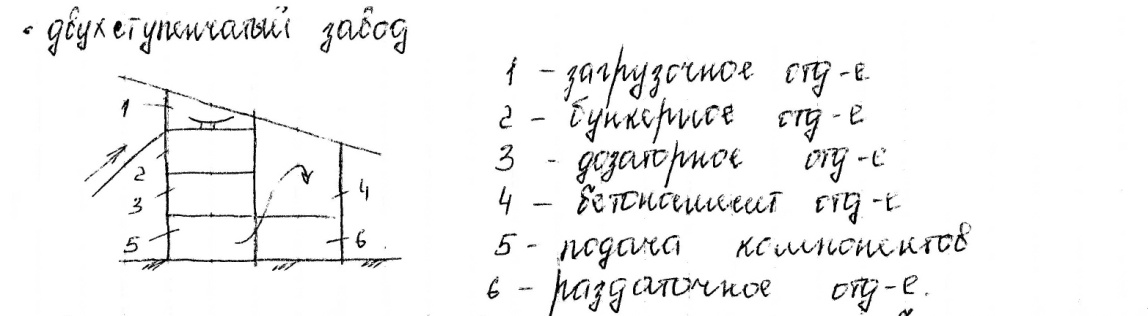 • двухступенчатый завод
1 – загрузочное отд-е
2 – бункерное отд-е
3 – дозаторное отд-е
4 – бетоносмесит отд-е
5 – подача компонентов
6 – раздаточное отд-е.
1
2
3
5
4
6